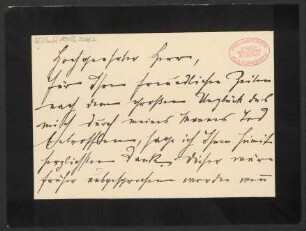 Hochgeehrter Herr,
für Ihre freundlichen Zeilen
nach dem großen Unglück das
mich durch meines Tod
betroffen, sage ich Ihnen hiemit
herzlichsten Dank. Dieser wäre
früher ausgesprochen worden wenn